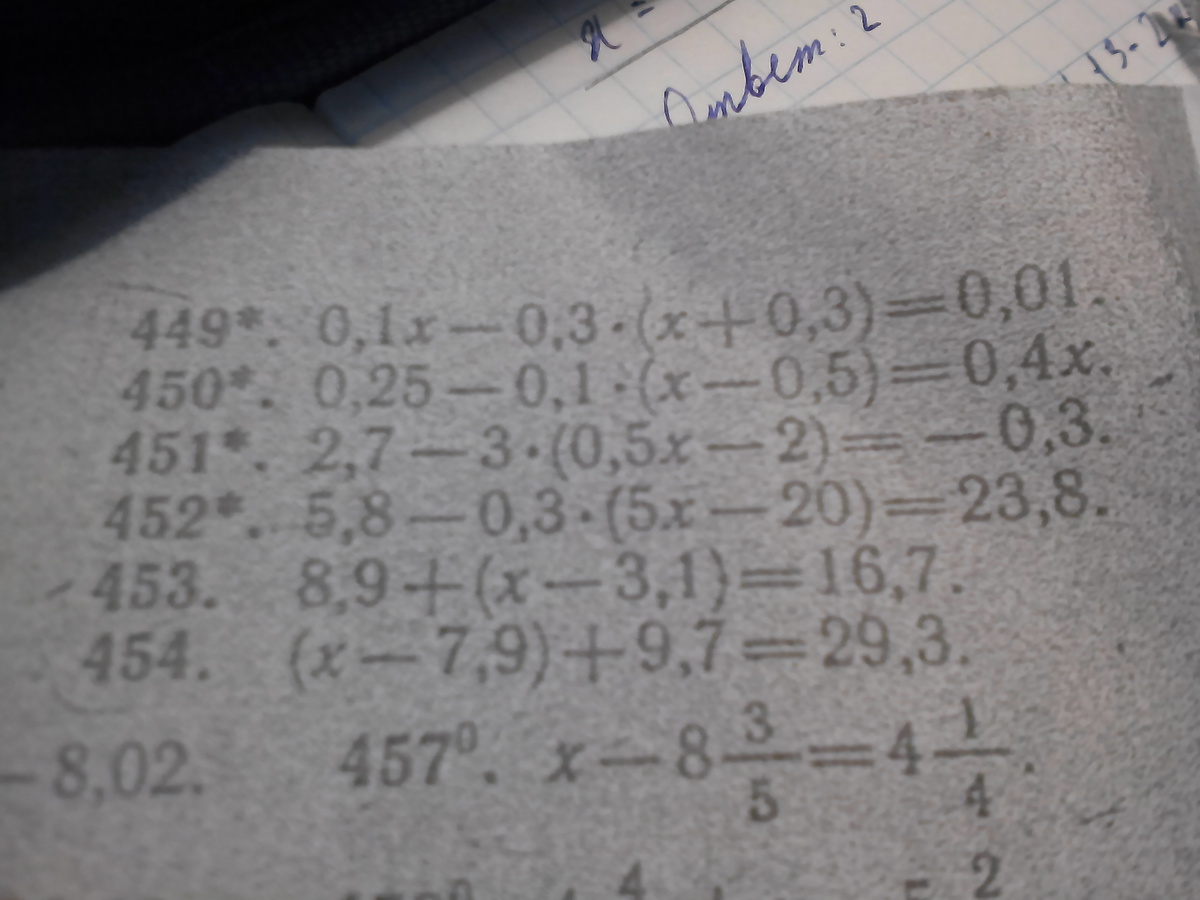 x =
Ответ: 2
449*. 0,1x — 0,3·(x+0,3)=0,01.
450*. 0,25 — 0,1·(x—0,5)=0,4x.
451*. 2,7 — 3·(0,5x — 2)= — 0,3.
452*. 5,8 — 0,3·(5x — 20)=23,8.
453. 8,9+(x — 3,1)=16,7.
454. (x — 7,9)+9,7=29,3.
— 8,02. 457⁰. x — 8 3/5 = 4 1/4.